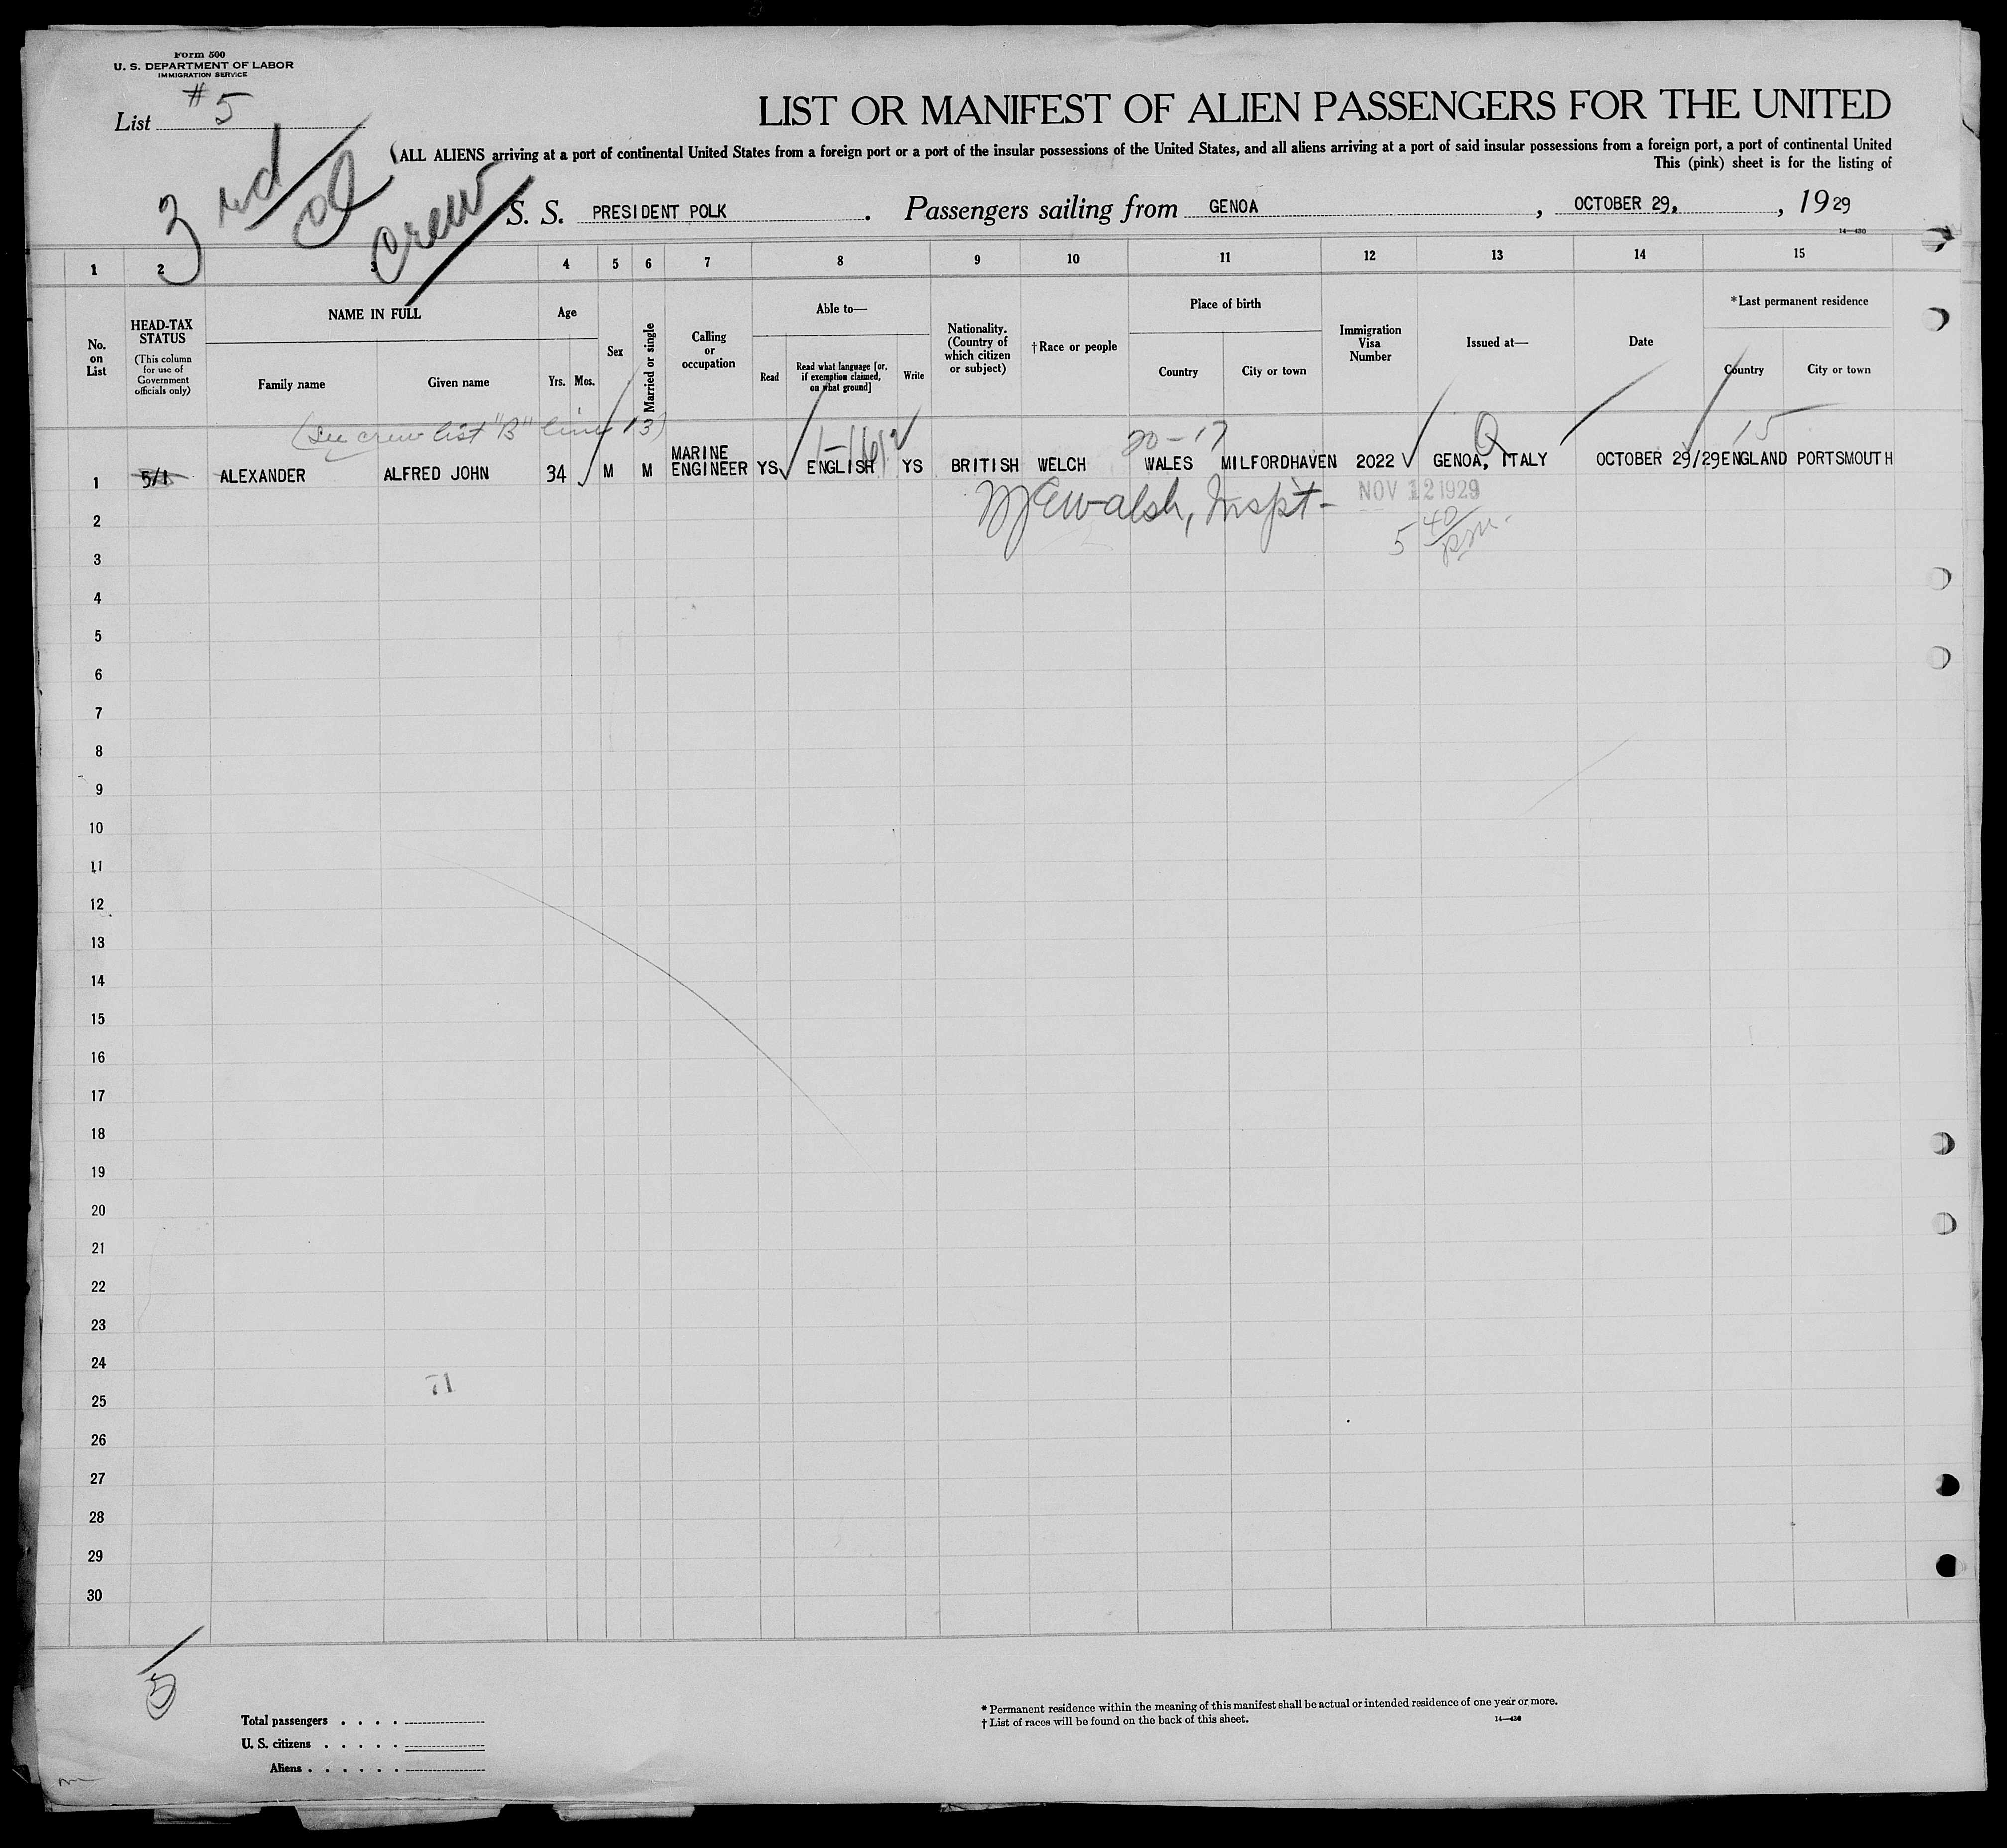 Form 500
U. S. DEPARTMENT OF LABOR
IMMIGRATION SERVICE
List #5
3rd cl crew
LIST OR MANIFEST OF ALIEN PASSENGERS FOR THE UNITED
ALL ALIENS arriving at a port of continental United States from a foreign port or a port of the insular possessions of the United States, and all aliens arriving at a port of said insular possessions from a foreign port, a port of continental United
This (pink) sheet is for the listing of
S. S. PRESIDENT POLK . Passengers sailing from GENOA , OCTOBER 29, , 1929
14—430
1 2 3 4 5 6 7 8 9 10 11 12 13 14 15
No. on List
HEAD-TAX STATUS
(This column for use of Government officials only)
NAME IN FULL
Family name
Given name
Age
Yrs. Mos.
Sex
Married or single
Calling or occupation
Able to—
Read
Read what language [or, if exemption claimed, on what ground]
Write
Nationality. (Country of which citizen or subject)
†Race or people
Place of birth
Country
City or town
Immigration Visa Number
Issued at—
Date
*Last permanent residence
Country
City or town
(see crew list "B" line 13)
20-17
15
1 5/1 ALEXANDER ALFRED JOHN 34 M M MARINE ENGINEER YS ENGLISH YS BRITISH WELCH WALES MILFORDHAVEN 2022 GENOA, ITALY OCTOBER 29/29 ENGLAND PORTSMOUTH
Walsh, Inspt-
NOV 12 1929
5 40/pm.
2
3
4
5
6
7
8
9
10
11
12
13
14
15
16
17
18
19
20
21
22
23
24
71
25
26
27
28
29
30
5
Total passengers . . . .
U. S. citizens . . . . .
Aliens . . . . . .
* Permanent residence within the meaning of this manifest shall be actual or intended residence of one year or more.
† List of races will be found on the back of this sheet.
14—430